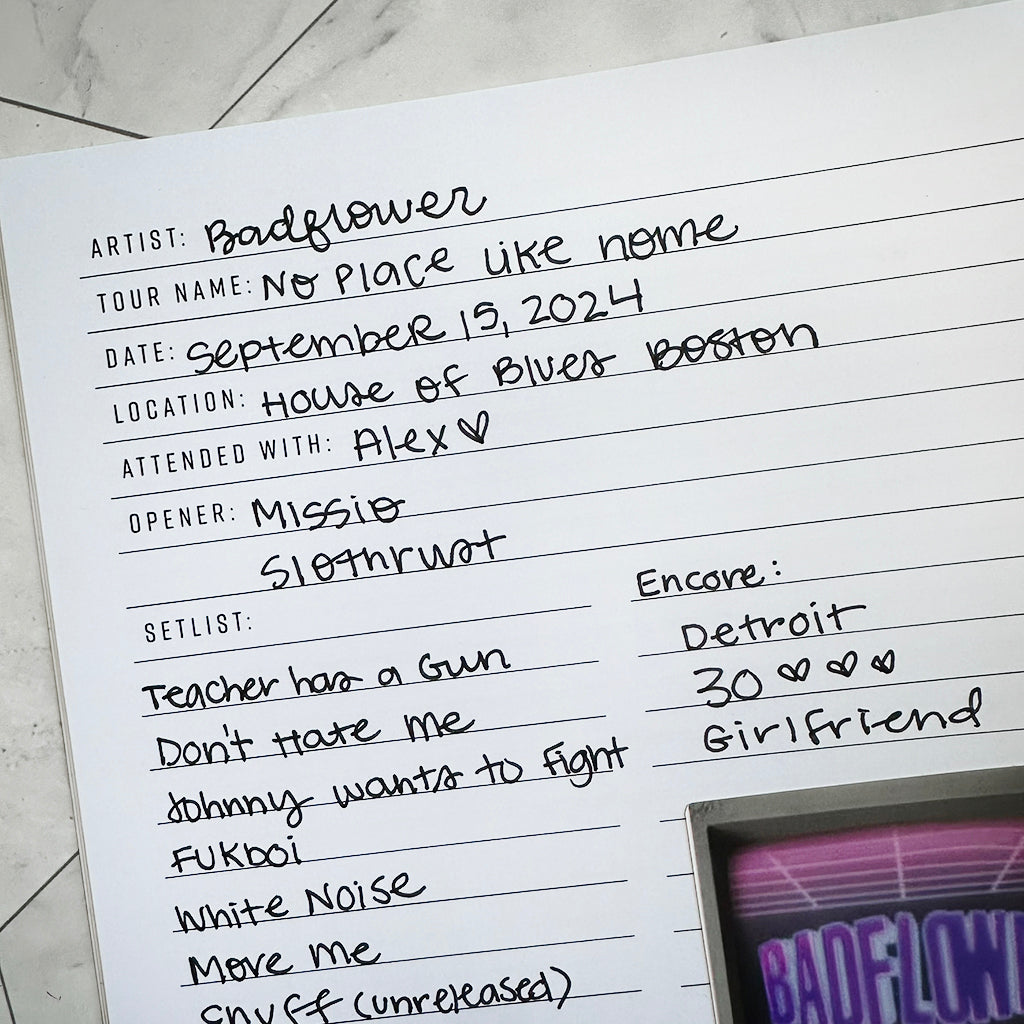 ARTIST: Badflower
TOUR NAME: No Place Like Home
DATE: September 15, 2024
LOCATION: House of Blues Boston
ATTENDED WITH: Alex♡
OPENER: Missio
Slothrust
SETLIST:
Teacher has a Gun
Don't Hate Me
Johnny wants to Fight
Fukboi
White Noise
Move Me
Snuff (unreleased)
Encore:
Detroit
30 ♡ ♡ ♡
Girlfriend
BADFLOW